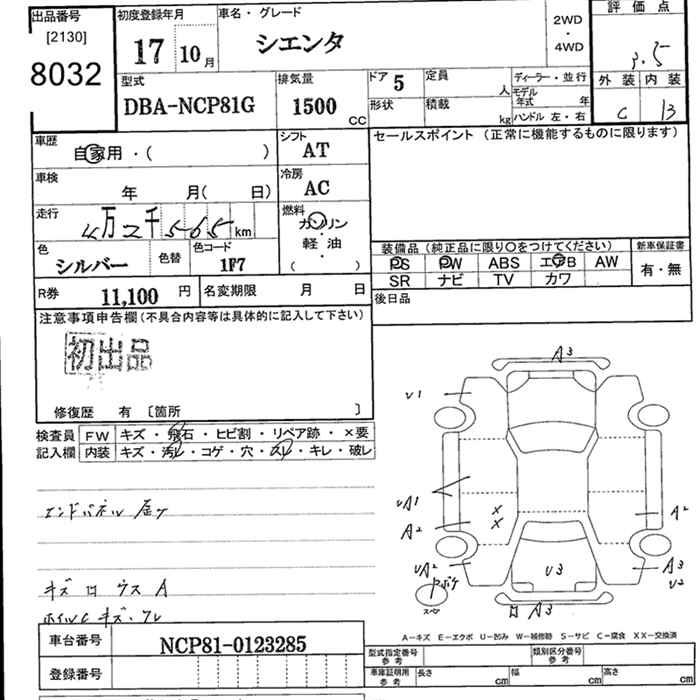 出品番号
[2130]
8032
初度登録年月
17 10月
車名・グレード
シエンタ
2WD
・
4WD
評価点
3.5
外装 内装
C B
型式
DBA-NCP81G
排気量
1500 CC
ドア 5
定員 人
形状
積載 kg
ディーラー・並行
モデル年式 年
ハンドル 左・右
車歴
自家用・( )
シフト
AT
セールスポイント (正常に機能するものに限ります)
車検
年 月( 日)
冷房
AC
走行
4万2千565km
燃料
ガソリン
・
軽油
( )
色
シルバー
色替
色コード
1F7
装備品 (純正品に限り〇をつけてください)
新車保証書
PS PW ABS エアB AW
SR ナビ TV カワ
有・無
R券 11,100 円
名変期限 月 日
後日品
注意事項申告欄(不具合内容等は具体的に記入して下さい)
初出品
修復歴 有 〔箇所 〕
検査員
記入欄
FW キズ・飛石・ヒビ割・リペア跡・×要
内装 キズ・汚レ・コゲ・穴・スレ・キレ・破レ
エンドパネル 届ケ
キズ ロ ウス A
ホイルC キズ・ワレ
A3
U1
UA1
A2
X
X
A2
UA2
ヤボケ
スペア
U3
A3
U2
A3
A−キズ E−エクボ U−凹み W−補修跡 S−サビ C−腐食 XX−交換済
車台番号
NCP81-0123285
登録番号
型式指定番号
参考
類別区分番号
参考
車庫証明用
参考
長さ cm
幅 cm
高さ cm